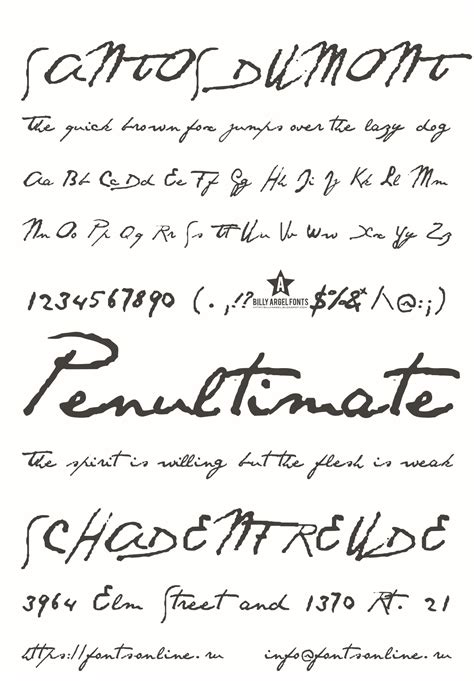 SANTOS DUMONT
The quick brown fox jumps over the lazy dog
Aa Bb Cc Dd Ee Ff Gg Hh Ii Jj Kk Ll Mm
Nn Oo Pp Qq Rr Ss Tt Uu Vv Ww Xx Yy Zz
1234567890 (.,!? $%&* /\@:;)
A
BILLY ARGEL FONTS
Penultimate
The spirit is willing but the flesh is weak
SCHADENFREUDE
3964 Elm Street and 1370 Rt. 21
https://fontsonline.ru info@fontsonline.ru